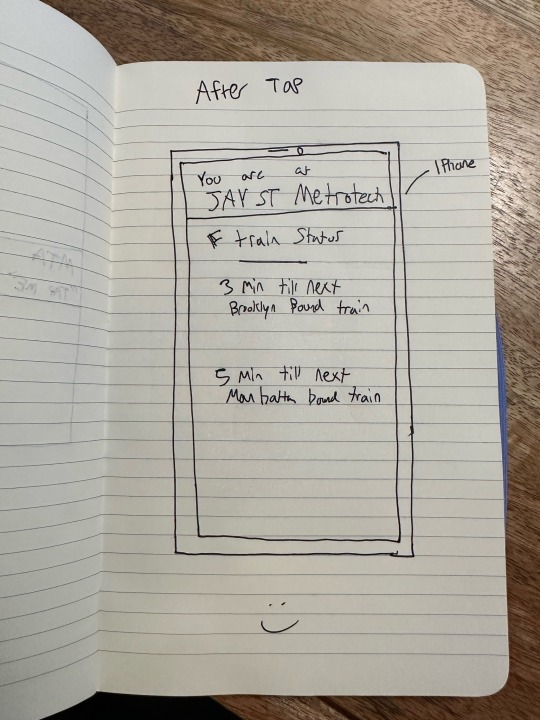 After Tap
You are at
JAY ST Metrotech
IPhone
F train Status
3 Min till next
Brooklyn Bound train
5 Min till next
Manhattan bound train
MTA
"TAP ME"